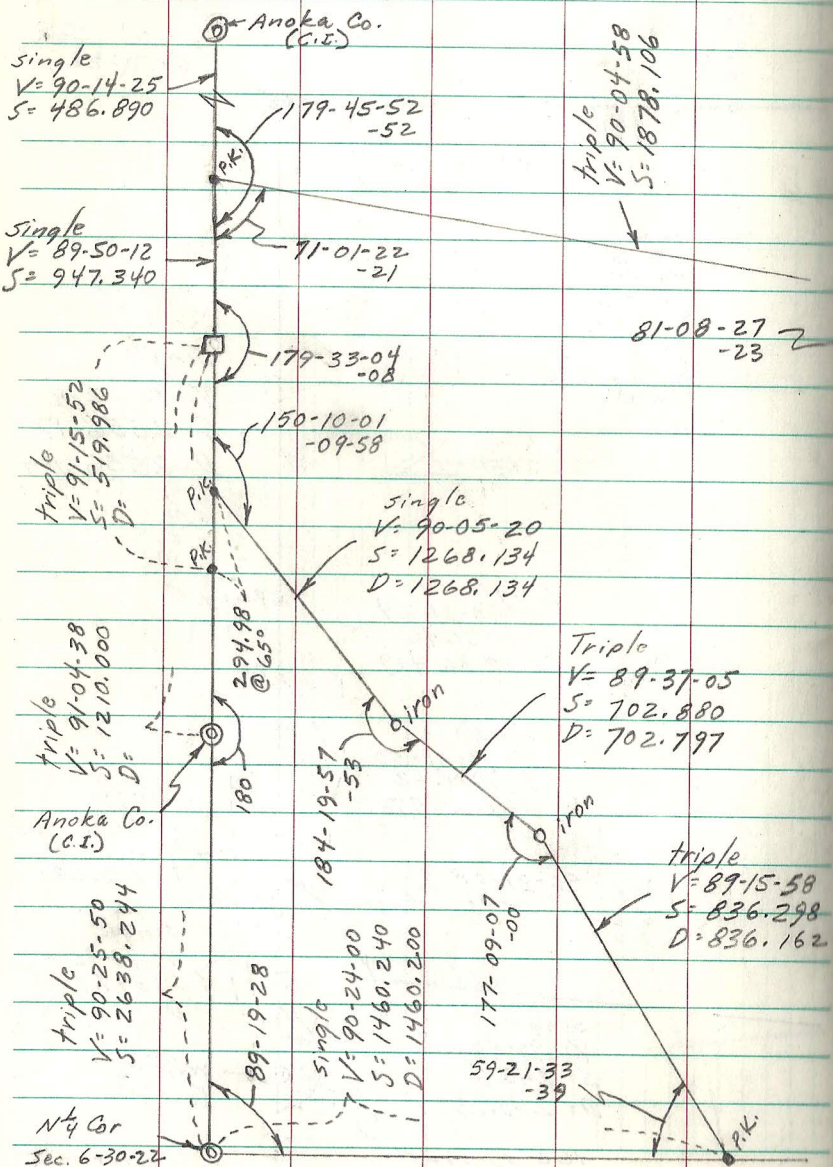 Anoka Co.
(C.I.)
single
V= 90-14-25
S= 486.890
179-45-52
-52
P.K.
triple
V= 90-04-58
S= 1878.106
single
V= 89-50-12
S= 947.340
71-01-22
-21
81-08-27
-23
179-33-04
-08
triple
V= 91-15-52
S= 519.986
D=
150-10-01
-09-58
P.K.
single
V= 90-05-20
S= 1268.134
D= 1268.134
P.K.
294.98
@ 65°
triple
V= 91-04-38
S= 1210.000
D=
Triple
V= 89-37-05
S= 702.880
D= 702.797
iron
180
184-19-57
-53
Anoka Co.
(C.I.)
iron
triple
V= 89-15-58
S= 836.298
D= 836.162
177-09-07
-00
triple
V= 90-25-50
S= 2638.244
89-19-28
single
V= 90-24-00
S= 1460.240
D= 1460.200
59-21-33
-39
P.K.
N¼ Cor
Sec. 6-30-22